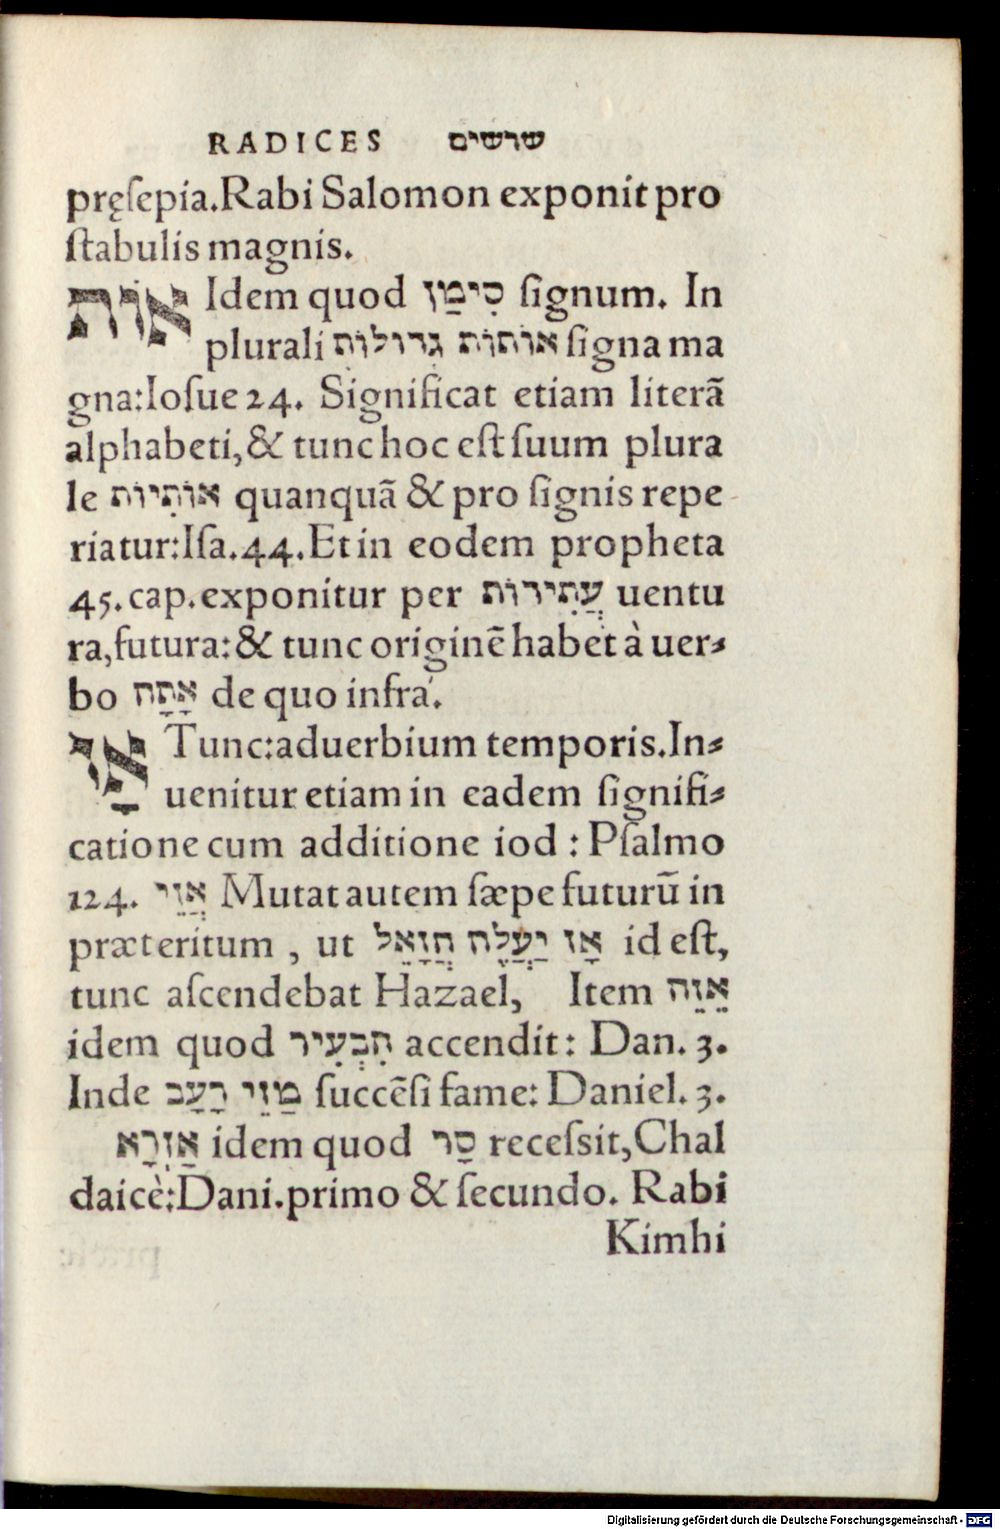 RADICES שרשים
pręſepia.Rabi Salomon exponit pro
ſtabulis magnis.
אוֹת Idem quod סִימַן ſignum. In
plurali אוֹתוֹת גְדוֹלוֹת ſigna ma
gna:Ioſue 24. Significat etiam literã
alphabeti,& tunc hoc eſt ſuum plura
le אוֹתִיוֹת quanquã & pro ſignis repe
riatur:Iſa.44.Et in eodem propheta
45.cap.exponitur per עֲתִידוֹת uentu
ra,futura:& tunc originẽ habet à uer⸗
bo אָתָה de quo infrà.
אָז Tunc:aduerbium temporis.In⸗
uenitur etiam in eadem ſignifi⸗
catione cum additione iod : Pſalmo
124. אֲזַי Mutat autem ſæpe futurũ in
præteritum , ut אָז יַעֲלֶה חֲזָאֵל id eſt,
tunc aſcendebat Hazael, Item אֵזֵה
idem quod הִבְעִיר accendit: Dan. 3.
Inde מַזֵי רָעָב ſuccẽſi fame: Daniel. 3.
אַזְדָא idem quod סַר receſsit,Chal
daicè:Dani.primo & ſecundo. Rabi
Kimhi
Digitalisierung gefördert durch die Deutsche Forschungsgemeinschaft - DFG